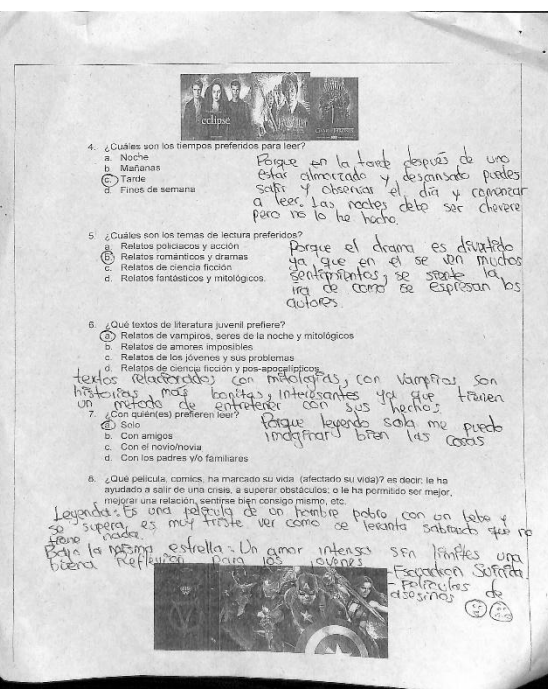 eclipse
4. ¿Cuáles son los tiempos preferidos para leer?
a. Noche
b. Mañanas
c. Tarde
d. Fines de semana
Porque en la tarde después de uno
estar almorzado y descansado puedes
salir y observar el día y comenzar
a leer. Las noches debe ser chevere
pero no lo he hecho.
5. ¿Cuáles son los temas de lectura preferidos?
a. Relatos policiacos y acción
b. Relatos románticos y dramas
c. Relatos de ciencia ficción
d. Relatos fantásticos y mitológicos.
Porque el drama es divertido
ya que en el se ven muchos
sentimientos, se siente la
ira de como se espresan los
autores.
6. ¿Qué textos de literatura juvenil prefiere?
a. Relatos de vampiros, seres de la noche y mitológicos
b. Relatos de amores imposibles
c. Relatos de los jóvenes y sus problemas
d. Relatos de ciencia ficción y pos-apocalípticos
textos relacionados con mitologias, con vampiros son
historias mas bonitas, interesantes ya que tienen
un metodo de entretener con sus hechos.
7. ¿Con quién(es) prefieren leer?
a. Solo
b. Con amigos
c. Con el novio/novia
d. Con los padres y/o familiares
Porque leyendo sola me puedo
imaginar bien las cosas
8. ¿Qué película, comics, ha marcado su vida (afectado su vida)? es decir: le ha
ayudado a salir de una crisis, a superar obstáculos; o le ha permitido ser mejor,
mejorar una relación, sentirse bien consigo mismo, etc.
Leyendas: Es una pelicula de un hombre pobre con un bebe y
se supera, es muy triste ver como se levanta sabiendo que no
tiene nada.
Bajo la misma estrella: Un amor intenso sin limites una
buena Reflexión para los jovenes
- Escuadron Suicida
- peliculas de
asesinos